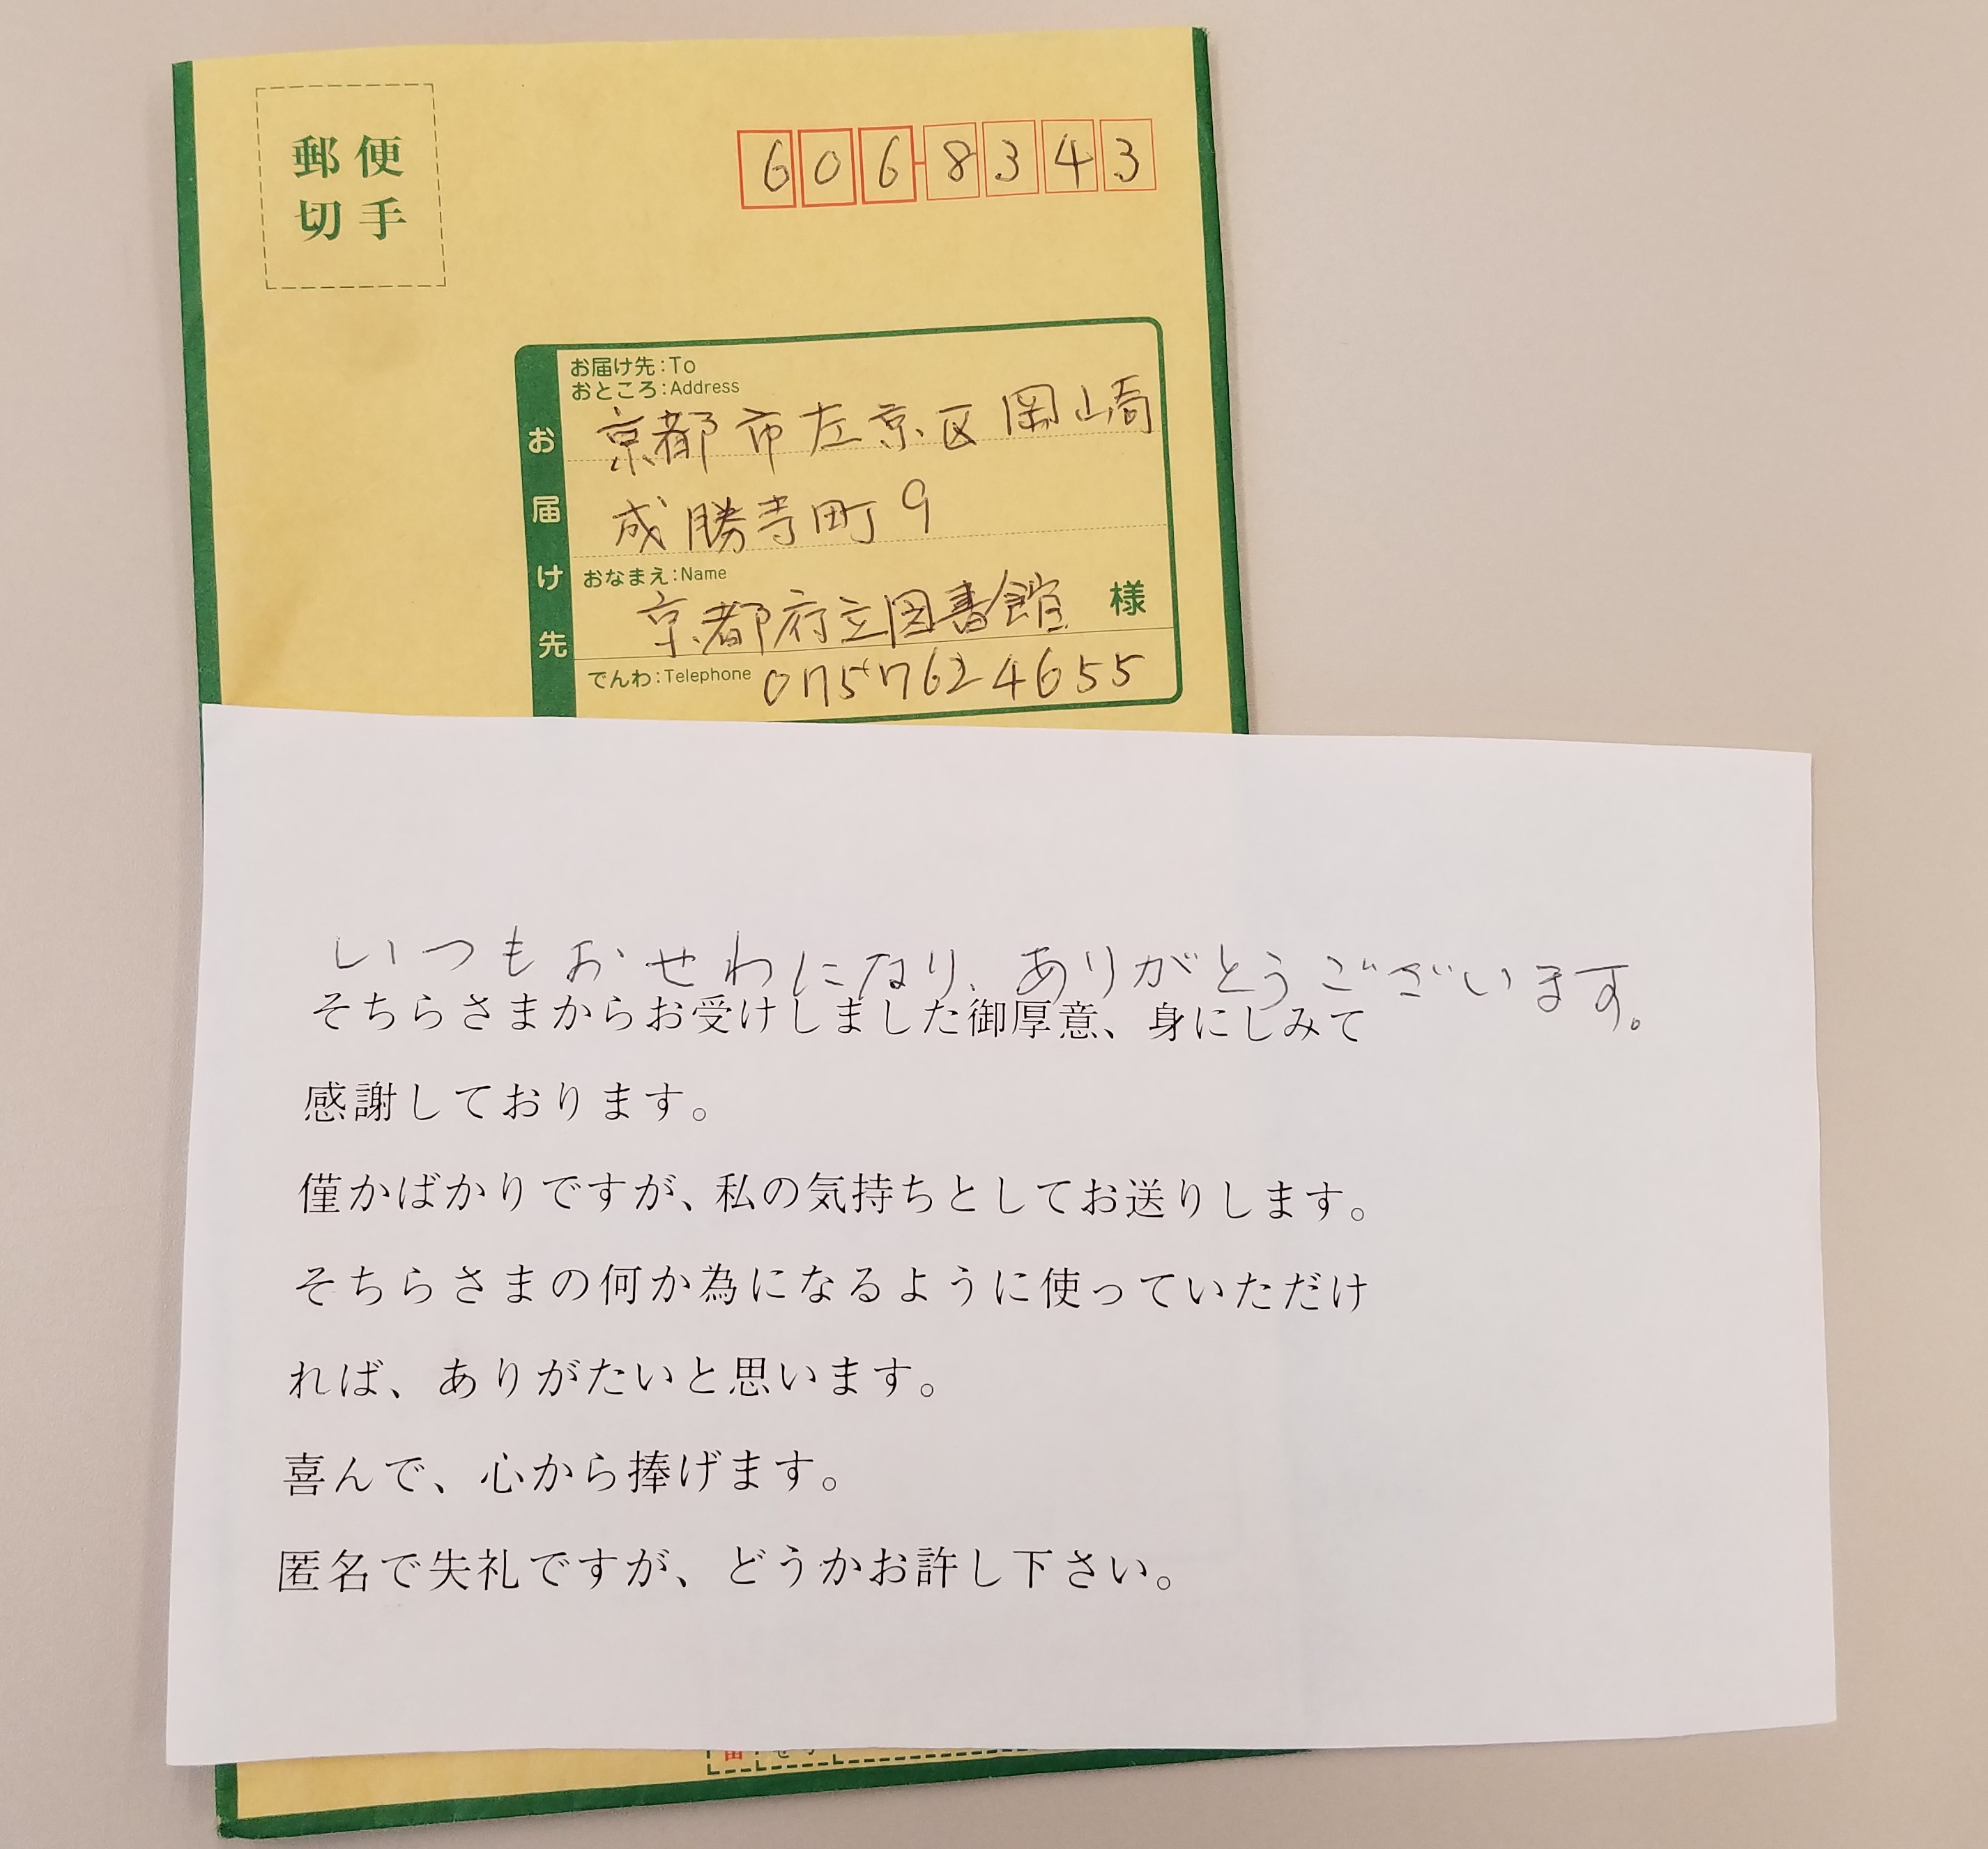 郵便
切手
606-8343
お届け先
お届け先:To
おところ:Address
京都市左京区岡崎
成勝寺町9
おなまえ:Name
京都府立図書館 様
でんわ:Telephone 0757624655
いつもおせわになり、ありがとうございます。
そちらさまからお受けしました御厚意、身にしみて
感謝しております。
僅かばかりですが、私の気持ちとしてお送りします。
そちらさまの何か為になるように使っていただけ
れば、ありがたいと思います。
喜んで、心から捧げます。
匿名で失礼ですが、どうかお許し下さい。